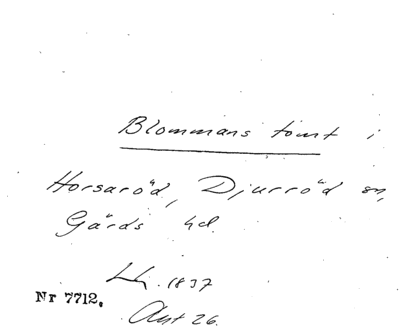 Blommans tomt i
Horsaröd, Djurröd sn,
Gärds hd.
Lh. 1837
Nr 7712.
Akt 26.